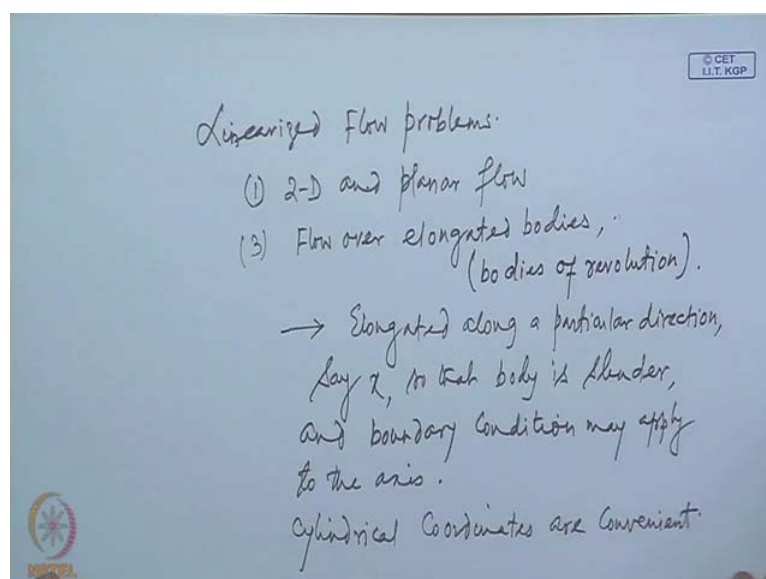 © CET
I.I.T. KGP
Linearized Flow problems.
(1) 2-D and planar flow
(3) Flow over elongated bodies,
(bodies of revolution).
→ Elongated along a particular direction,
say x, so that body is slender,
and boundary condition may apply
to the axis.
Cylindrical Coordinates are Convenient.
NPTEL